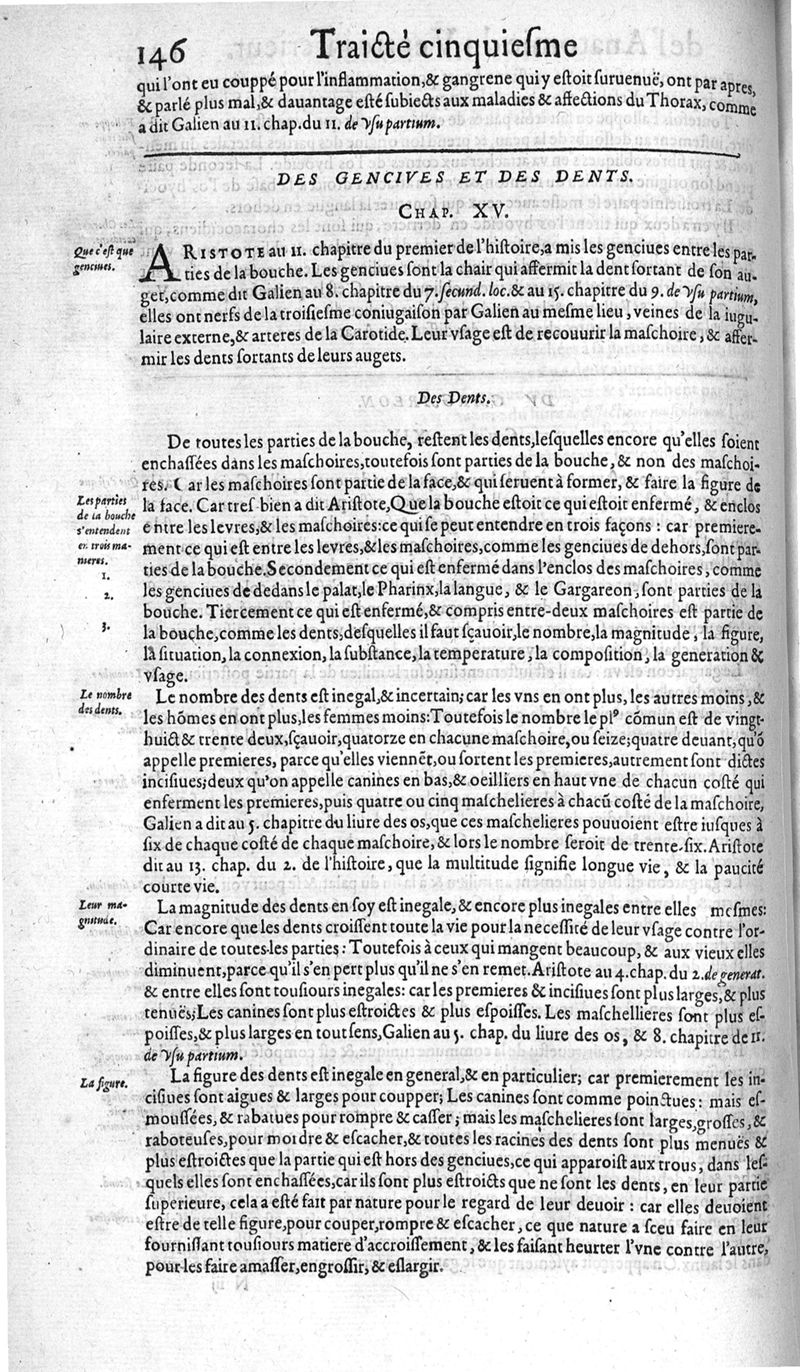 146 Traicté cinquiesme
qui l'ont eu couppé pour l'inflammation, & gangrene qui y estoit suruenuë, ont par apres,
& parlé plus mal, & dauantage esté subiects aux maladies & affections du Thorax, comme
a dit Galien au 11. chap. du 11. de Vsu partium.
DES GENCIVES ET DES DENTS.
CHAP. XV.
Que c'est que
genciues.
ARISTOTE au 11. chapitre du premier de l'histoire, a mis les genciues entre les par-
ties de la bouche. Les genciues sont la chair qui affermit la dent sortant de son au-
get, comme dit Galien au 8. chapitre du 7. secund. loc. & au 15. chapitre du 9. de Vsu partium,
elles ont nerfs de la troisiesme coniugaison par Galien au mesme lieu, veines de la iugu-
laire externe, & arteres de la Carotide. Leur vsage est de recouurir la maschoire, & affer-
mir les dents sortants de leurs augets.
Des Dents.
De toutes les parties de la bouche, restent les dents, lesquelles encore qu'elles soient
enchassées dans les maschoires, toutefois sont parties de la bouche, & non des maschoi-
res. Car les maschoires sont partie de la face, & qui seruent à former, & faire la figure de
la face. Car tres bien a dit Aristote, Que la bouche estoit ce qui estoit enfermé, & enclos
entre les levres, & les maschoires: ce qui se peut entendre en trois façons : car premiere-
ment ce qui est entre les levres, & les maschoires, comme les genciues de dehors, sont par-
ties de la bouche. Secondement ce qui est enfermé dans l'enclos des maschoires, comme
les genciues de dedans le palat, le Pharinx, la langue, & le Gargareon, sont parties de la
bouche. Tiercement ce qui est enfermé, & compris entre-deux maschoires est partie de
la bouche, comme les dents; desquelles il faut sçauoir, le nombre, la magnitude, la figure,
la situation, la connexion, la substance, la temperature, la composition, la generation &
vsage.
Les parties
de la bouche
s'entendent
en trois ma-
nieres.
1.
2.
3.
Le nombre
des dents.
Le nombre des dents est inegal, & incertain; car les vns en ont plus, les autres moins, &
les hõmes en ont plus, les femmes moins: Toutefois le nombre le plꝰ cõmun est de vingt-
huict & trente deux, sçauoir, quatorze en chacune maschoire, ou seize; quatre deuant, qu'õ
appelle premieres, parce qu'elles viennẽt, ou sortent les premieres, autrement sont dictes
incisiues; deux qu'on appelle canines en bas, & oeilliers en haut vne de chacun costé qui
enferment les premieres, puis quatre ou cinq maschelieres à chacũ costé de la maschoire,
Galien a dit au 5. chapitre du liure des os, que ces maschelieres pouuoient estre iusques à
six de chaque costé de chaque maschoire, & lors le nombre seroit de trente-six. Aristote
dit au 13. chap. du 2. de l'histoire, que la multitude signifie longue vie, & la paucité
courte vie.
Leur ma-
gnitude.
La magnitude des dents en soy est inegale, & encore plus inegales entre elles mesmes:
Car encore que les dents croissent toute la vie pour la necessité de leur vsage contre l'or-
dinaire de toutes-les parties : Toutefois à ceux qui mangent beaucoup, & aux vieux elles
diminuent, parce qu'il s'en pert plus qu'il ne s'en remet. Aristote au 4. chap. du 2. de generat.
& entre elles sont tousiours inegales: car les premieres & incisiues sont plus larges, & plus
tenuës; Les canines sont plus estroictes & plus espoisses. Les maschellieres sont plus es-
poisses, & plus larges en tout sens, Galien au 5. chap. du liure des os, & 8. chapitre de 11.
de Vsu partium.
La figure.
La figure des dents est inegale en general, & en particulier; car premierement les in-
cisiues sont aigues & larges pour coupper; Les canines sont comme poinctues: mais es-
moussées, & rabatues pour rompre & casser; mais les maschelieres sont larges, grosses, &
raboteuses, pour mordre & escacher, & toutes les racines des dents sont plus menuës &
plus estroictes que la partie qui est hors des genciues, ce qui apparoist aux trous, dans les-
quels elles sont enchassées, car ils sont plus estroicts que ne sont les dents, en leur partie
superieure, cela a esté fait par nature pour le regard de leur deuoir : car elles deuoient
estre de telle figure, pour couper, rompre & escacher, ce que nature a sceu faire en leur
fournissant tousiours matiere d'accroissement, & les faisant heurter l'vne contre l'autre,
pour les faire amasser, engrossir, & eslargir.